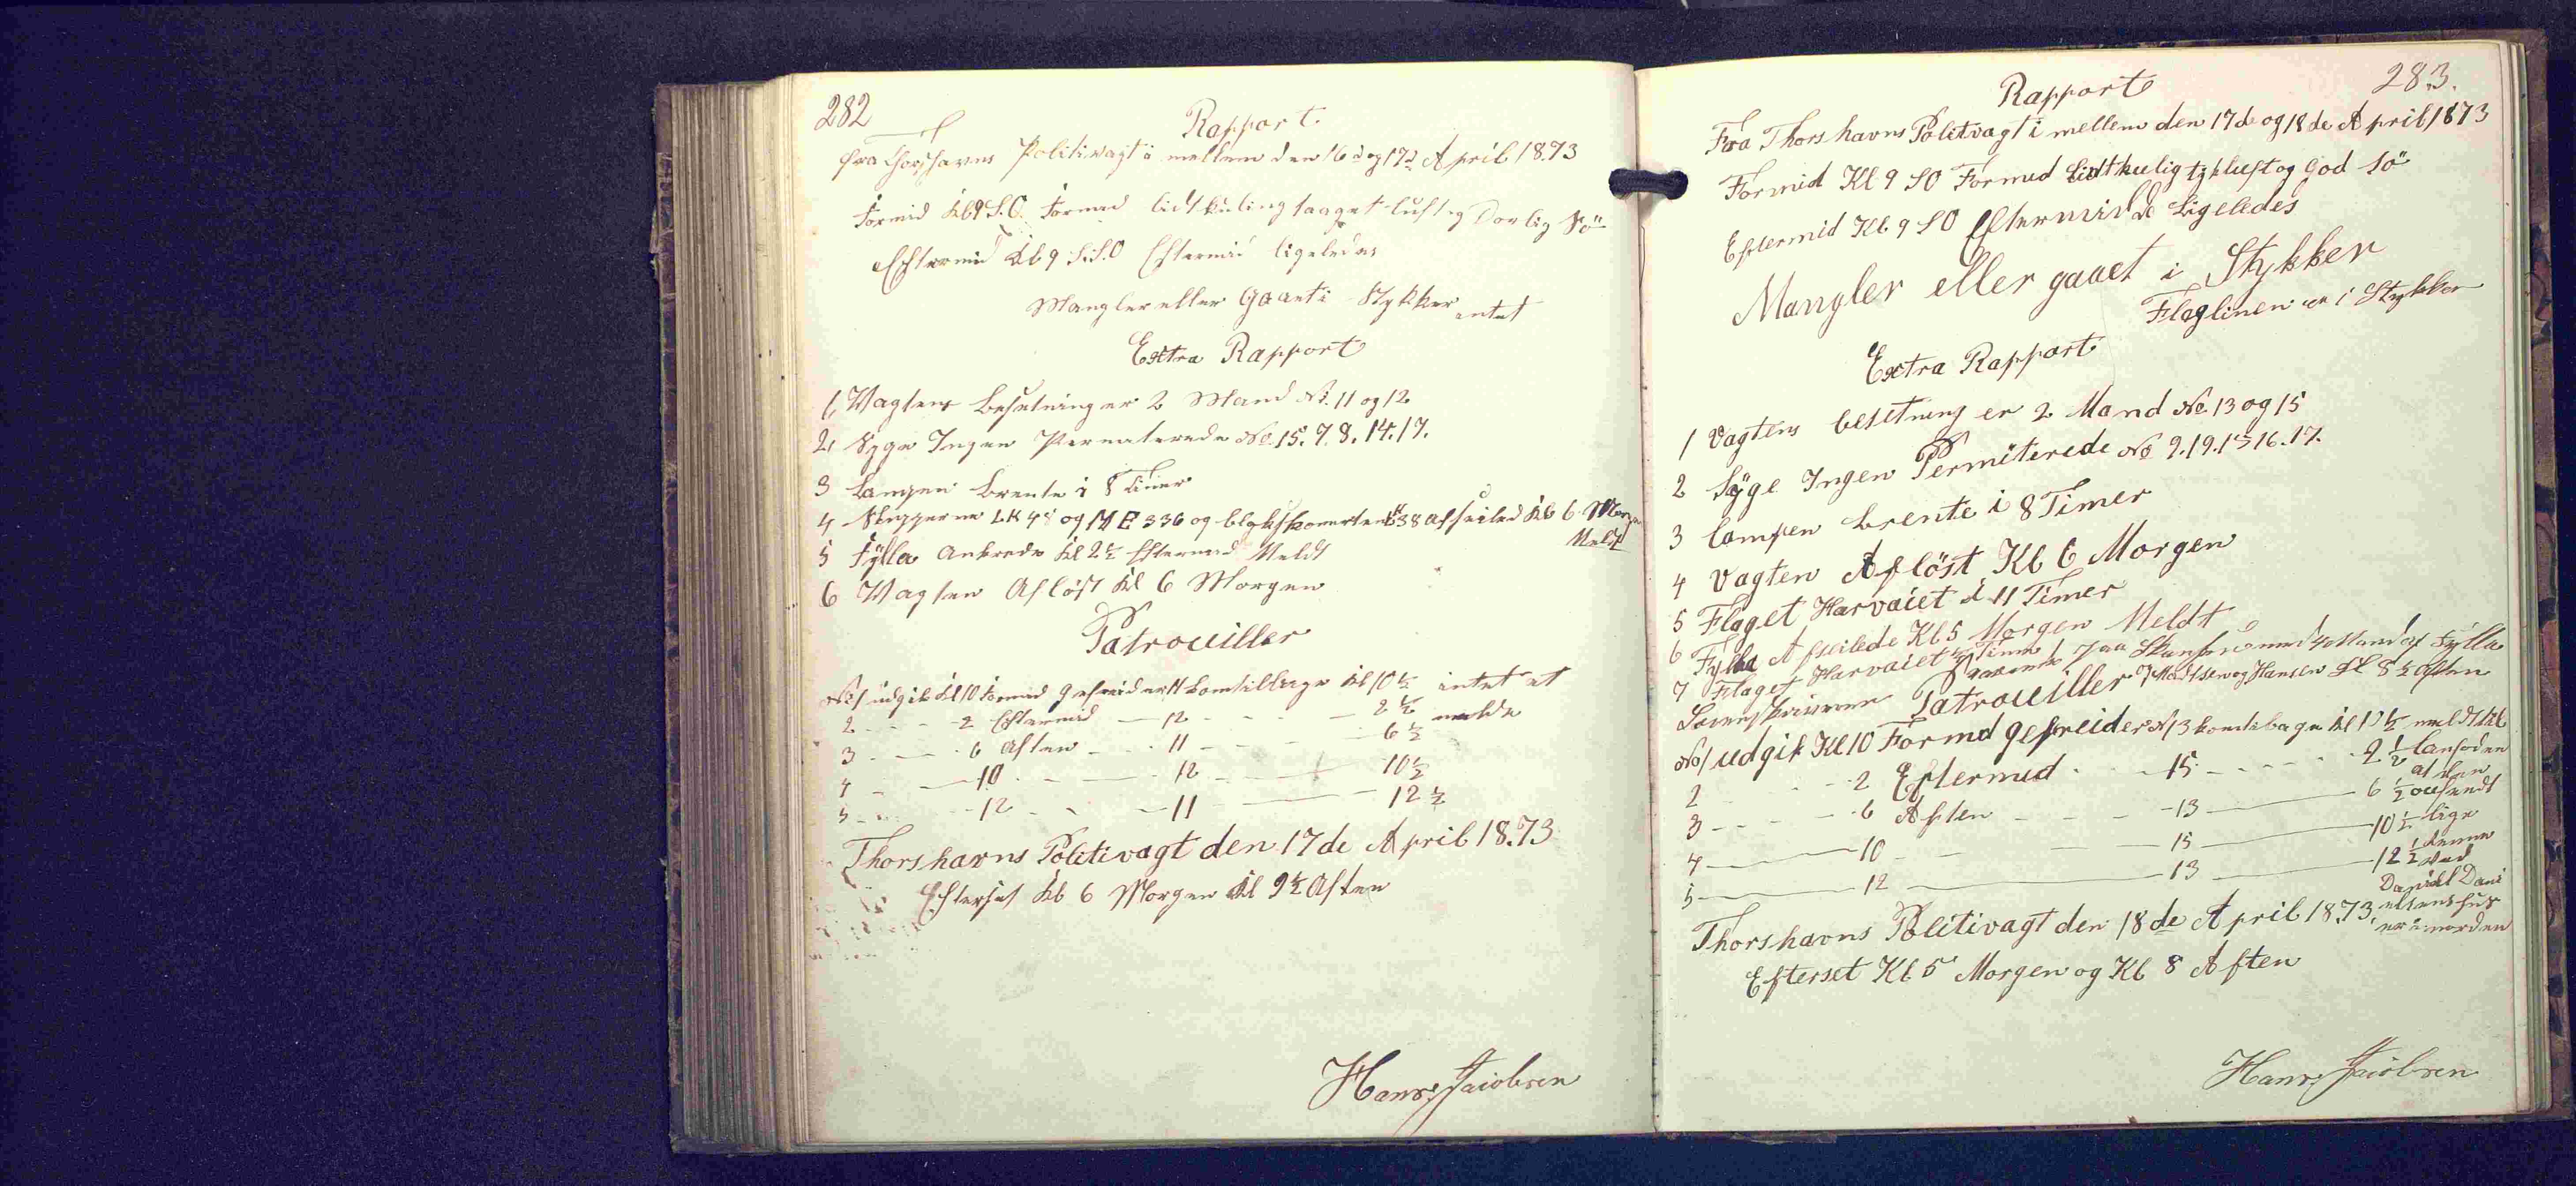 282
Rapport
fra Thorshavns Politivagt i mellem den 16de og 17de April 1873
Formid Kl 9 S.O. Formid lidt kuling taaget luft og Daarlig Sö
Eftermid Kl 9 S.S.O Eftermid ligeledes
Mangler eller Gaaet i Stykker intet
Extra Rapport
1, Vagtens besetning er 2 Mand No. 11 og 12
2, Syge Ingen Permeterede No 15. 7. 8. 14. 17.
3 Lampen brente i 8 Timer
4 Slupperne LK 48 og ME 336 og 38 afseiled Kl 6 Morgen
Meldt
5 Fylla Ankrede Kl 2½ Eftermid Meldt
6 Vagten Aflöst Kl 6 Morgen
Patrouiller
No 1 udgik Kl 10 Formid gefreider 11 kom tilbage Kl 10½ intet at
2 - - - 2 Eftermid - 12 - - - 2½ melde
3 - - - 6 Aften - - 11 - - - 6½
4 - - 10 - - - 12 - - 10½
5 - - - 12 - - 11 - 12½
Thorshavns Politivagt den 17de April 1873
Efterset Kl 6 Morgen Kl 9½ Aften
Hans Jacobsen
283.
Rapport
Fra Thorshavns Politvagt i mellem den 17de og 18de April 1873
Formid Kl 9 SO Formid Lidt kulig tykluft og God Sö
Eftermid Kl. 9 SO Eftermidde Ligeledes
Mangler eller gaaet i Stykker
Flaglinen er i Stykker
Extra Rapport
1 Vagtens besetning er 2 Mand No 13 og 15
2 Syge Ingen Permiterede No 9. 19. 15 16. 17.
3 Lampen brente i 8 Timer
4 Vagten Aflöst Kl 6 Morgen
5 Flaget Harvaiet i 11 Timer
6 Fylla Afseilede Kl 5 Morgen Meldt
7 Flaget Harvaiet Timer paa Skansen med 40 Mand af Fylla
Patrouiller 7 Madssen og Hansen Kl 8½ Aften
No 1 udgik Kl 10 Formd gefreider No 13 kom tebage Kl 10½ meldt
2 - - - 2 Eftermid - - 15 - - - - 2½
3 - - - 6 Aften - - - 13 - 6½ at den
4 - 10 - - 15 - 10½ lige
5 - 12 - 13 - 12½ ved
Daniel Dani
elsens hus
er i uorden
Thorshavns Politivagt den 18de April 1873
Efterset Kl. 5 Morgen og Kl 8 Aften
Hans Jacobsen